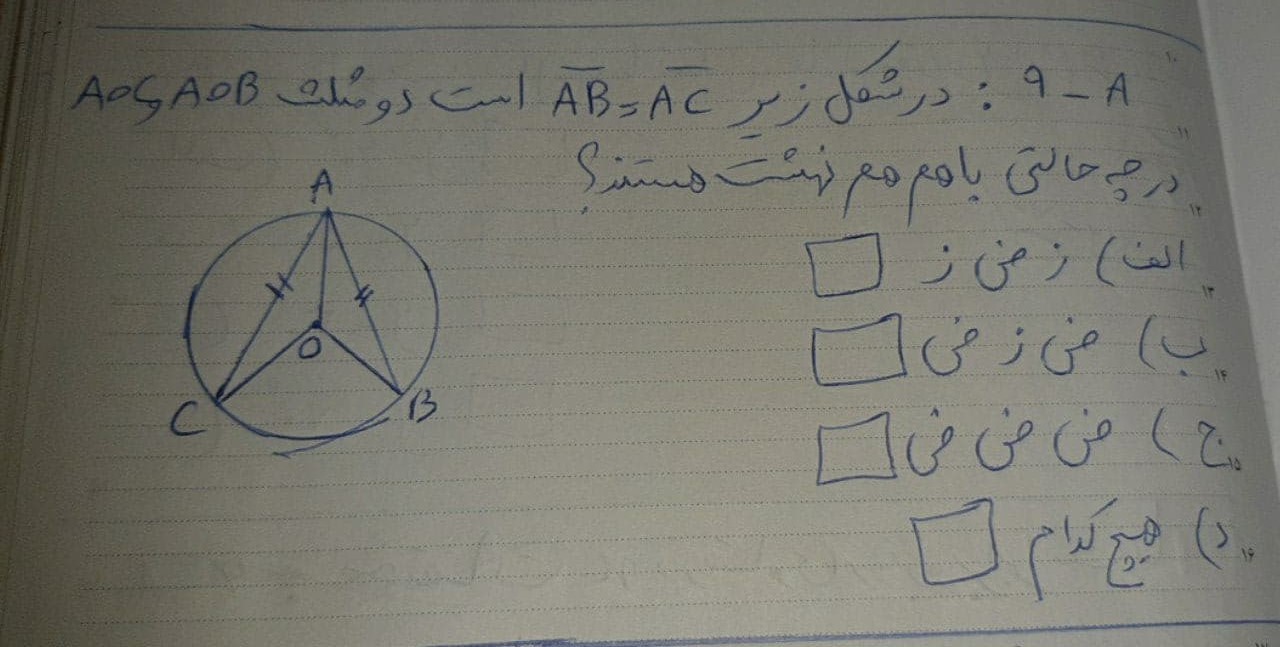 ۹ - A : در شکل زیر AB = AC است دو مثلث AOB و AOC
در چه حالتی با هم هم نهشت هستند؟
الف) ز ض ز
ب) ض ز ض
ج) ض ض ض
د) هیچ کدام
A
O
C
B
۱۰
۱۱
۱۲
۱۳
۱۴
۱۵
۱۶